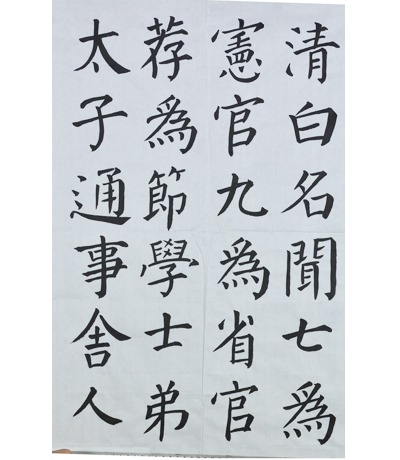 清白名聞七為
憲官九為省官
荐為節學士弟
太子通事舍人